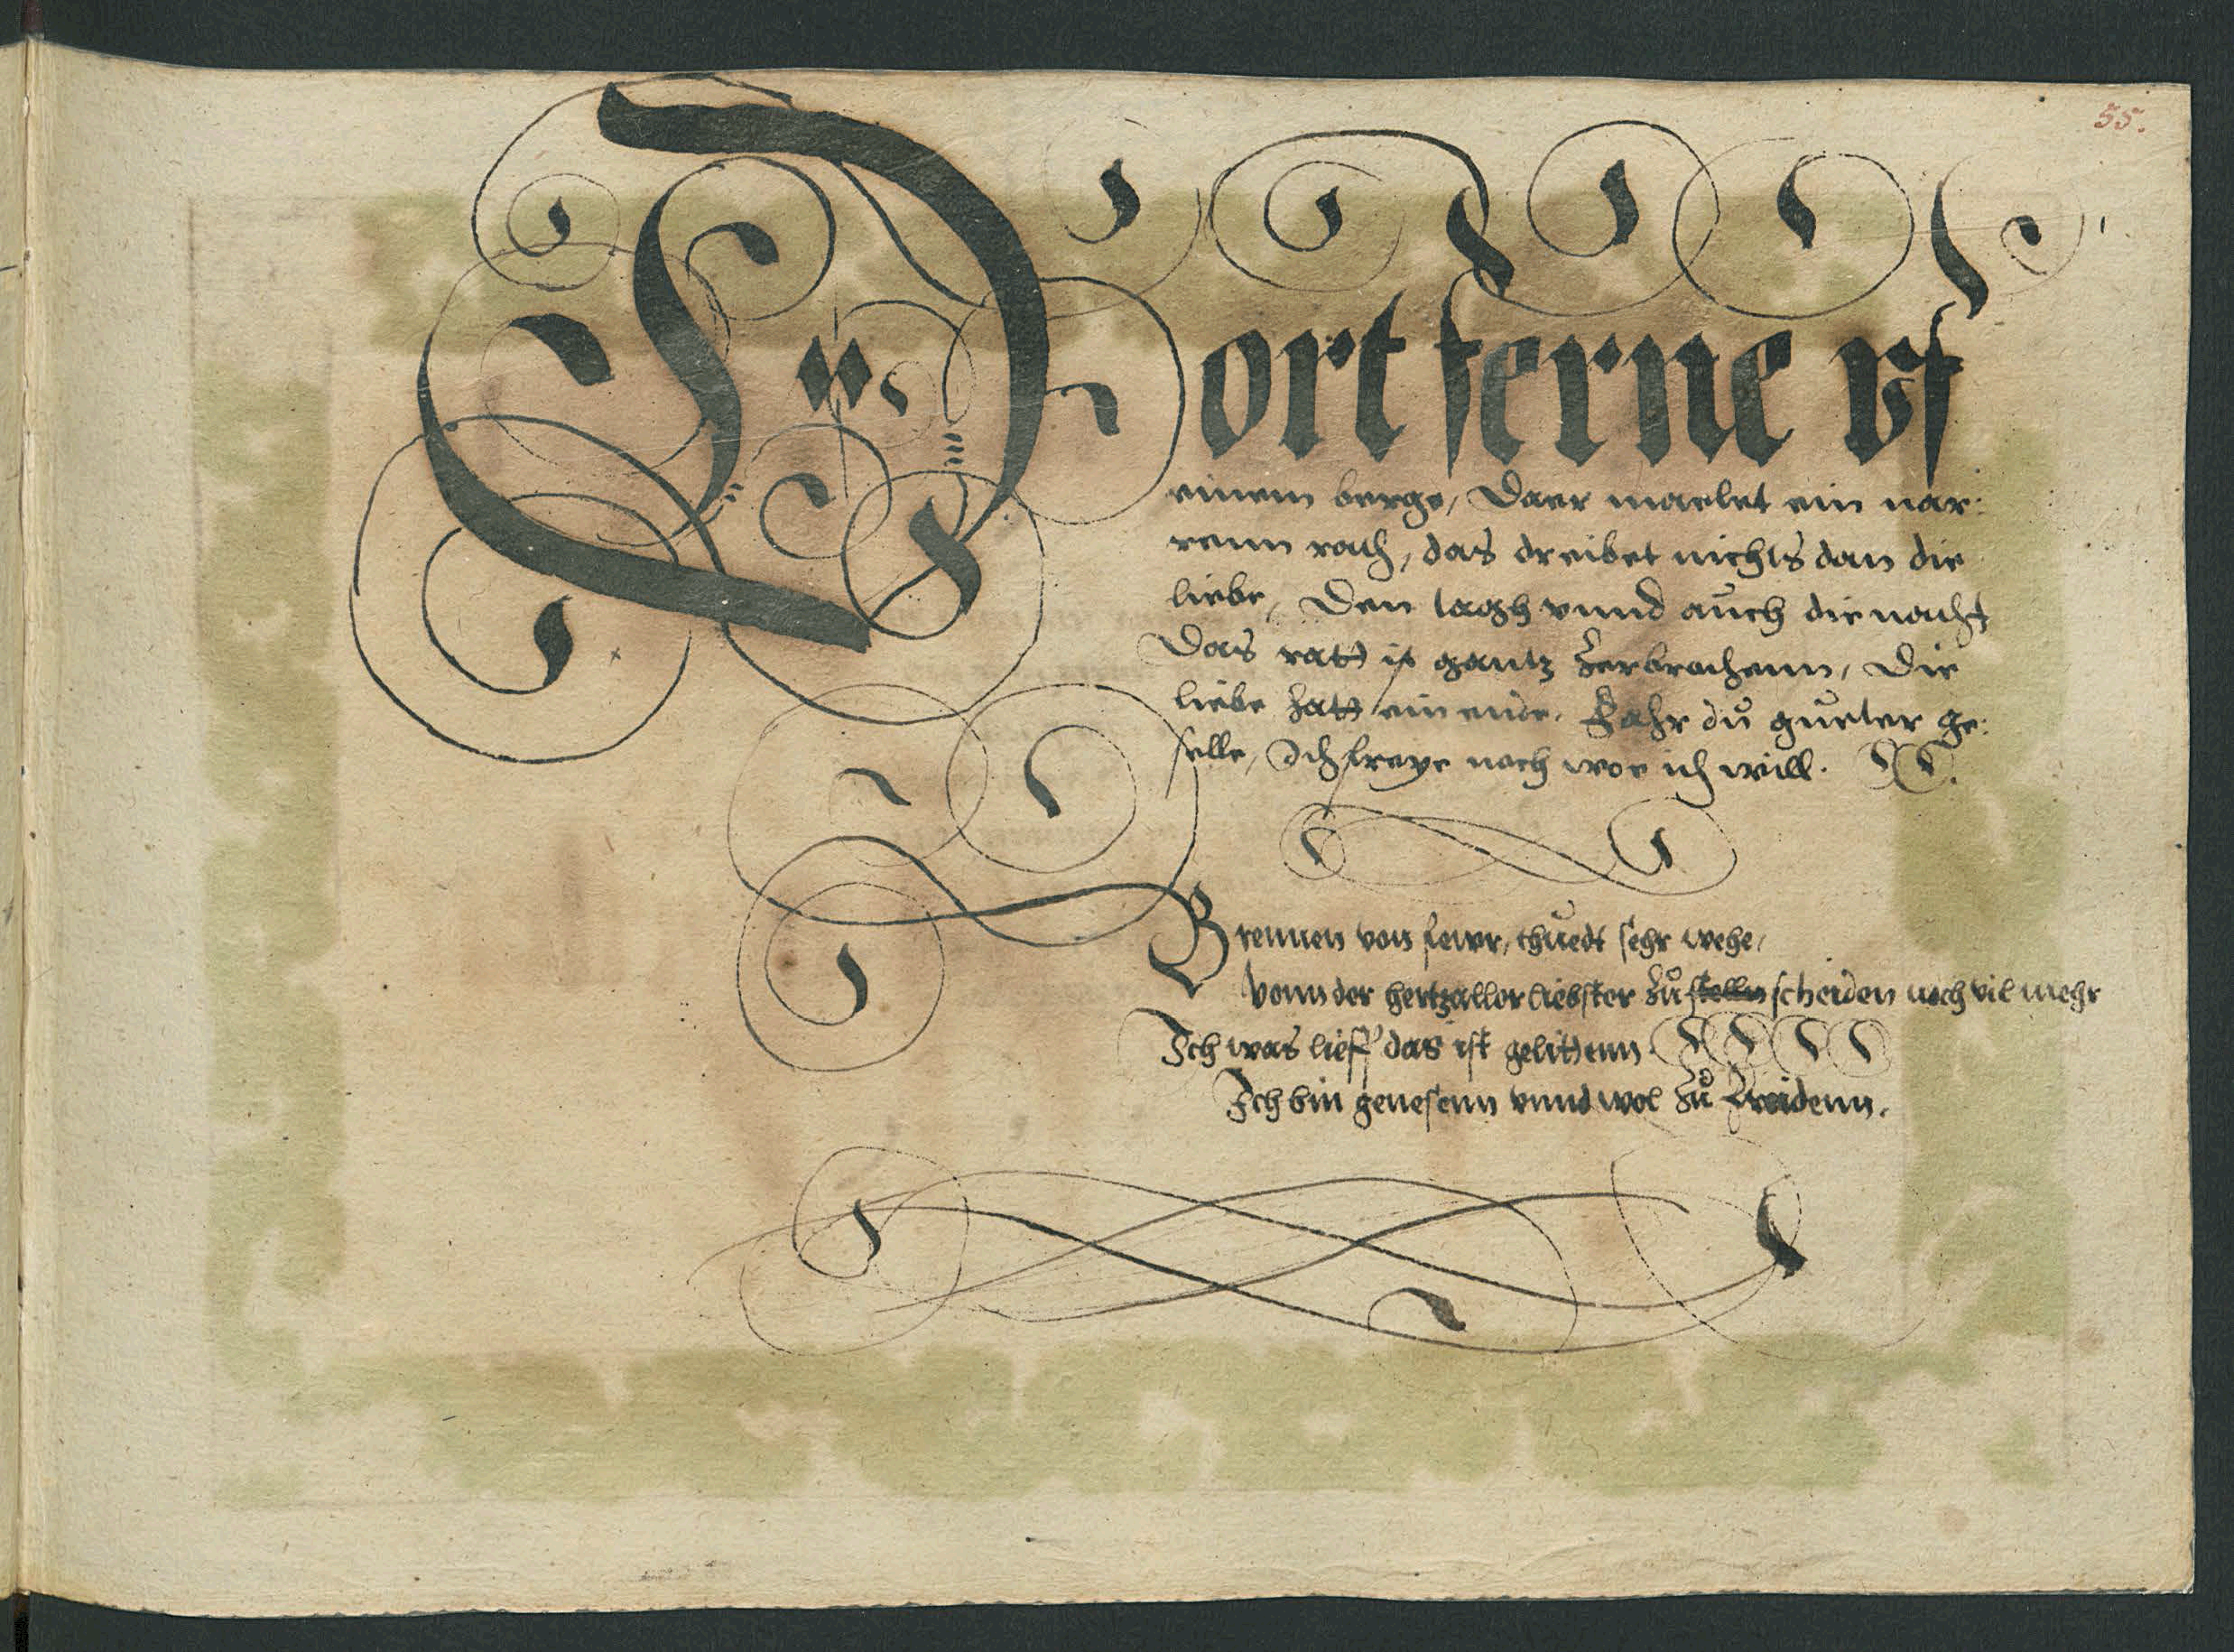 55.
Dort ferne vf
einem berge, Daer maelet ein nar:
renn rath, das dreibet nichts dan die
liebe, Den tagh vnnd auch die nacht
Das ratt ist gantz zerbrochenn, Die
liebe hatt ein ende, Fahr du gueter ge:
selle, Ich freye noch woe ich will.
Brennen von fewr, thuedt sehr wehe,
vonn der hertzallerliebster zu stelln scheiden noch vil mehr
Ich was lieff das ist gelittenn
Ich bin genesenn vnnd wol zu